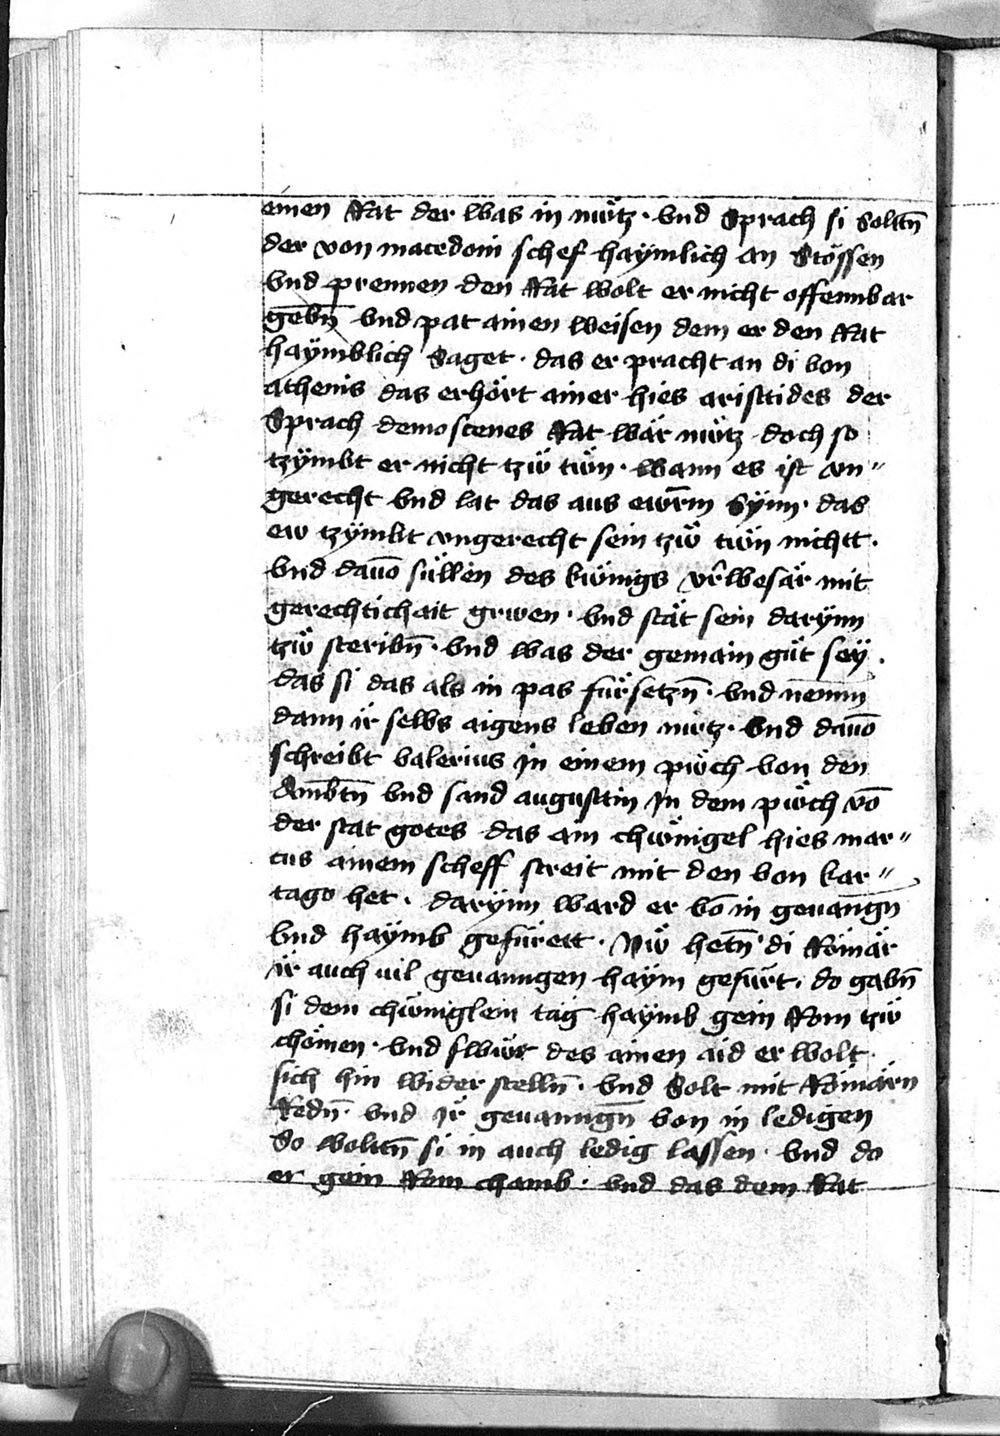 einen Rat der was in nücz · vnd Sprach si Soltn̄
der von macedoni schef haÿmlich an Stössen
vnd prennen den Rat wolt er nicht offennbar
gebn̄ vnd pat ainen weisen dem er den Rat
haÿmblich Saget · das er pracht an di von
athenis das erhört ainer hies aristides der
Sprach demostenes Rat wär nücz doch so
tzÿmbt er nicht tzw̋ tw̋n · wann es ist vn〃
gerecht vnd lat das aus ewrm̄ Sÿnn · das
ew tzÿmbt vngerecht sein tzw̋ tw̋n nichtt ·
vnd dauō süllen des künigs v̂rbesär mit
gerechtichait grwen · vnd stät sein darynn
tzw̋ steribn̄ · vnd was der gemain güt seÿ ·
das si das als in pas fürsetzn̄ · vnd nēmm
dann ir selbs aigens leben nücz · vnd dauō
schreibt valerius in einem pw̋ch von den
Ambtn̄ vnd sand augustin Jn dem pw̋ch vō
der stat gotes das ain chw̋nigel hies mar〃
cus ainem scheff streit mit den von kar〃
tago het · darÿnn ward er vō in geuangn̄
vnd haÿmb gefürett · Nw̋ hetn̄ di Römär
ir auch uil geuanngen haÿm gefürt · do gabn̄
si dem chw̋niglein tag haÿmb gein Rom tzw̋
chömen · vnd swür des ainen aid er wolt
sich hin wider stelln̄ · vnd Solt mit Römärn
Redn̄ · vnd Jr geuanngn̄ von in ledigen
So woltn̄ si in auch ledig lassen · vnd do
er gein Rom chamb · vnd das dem Rat